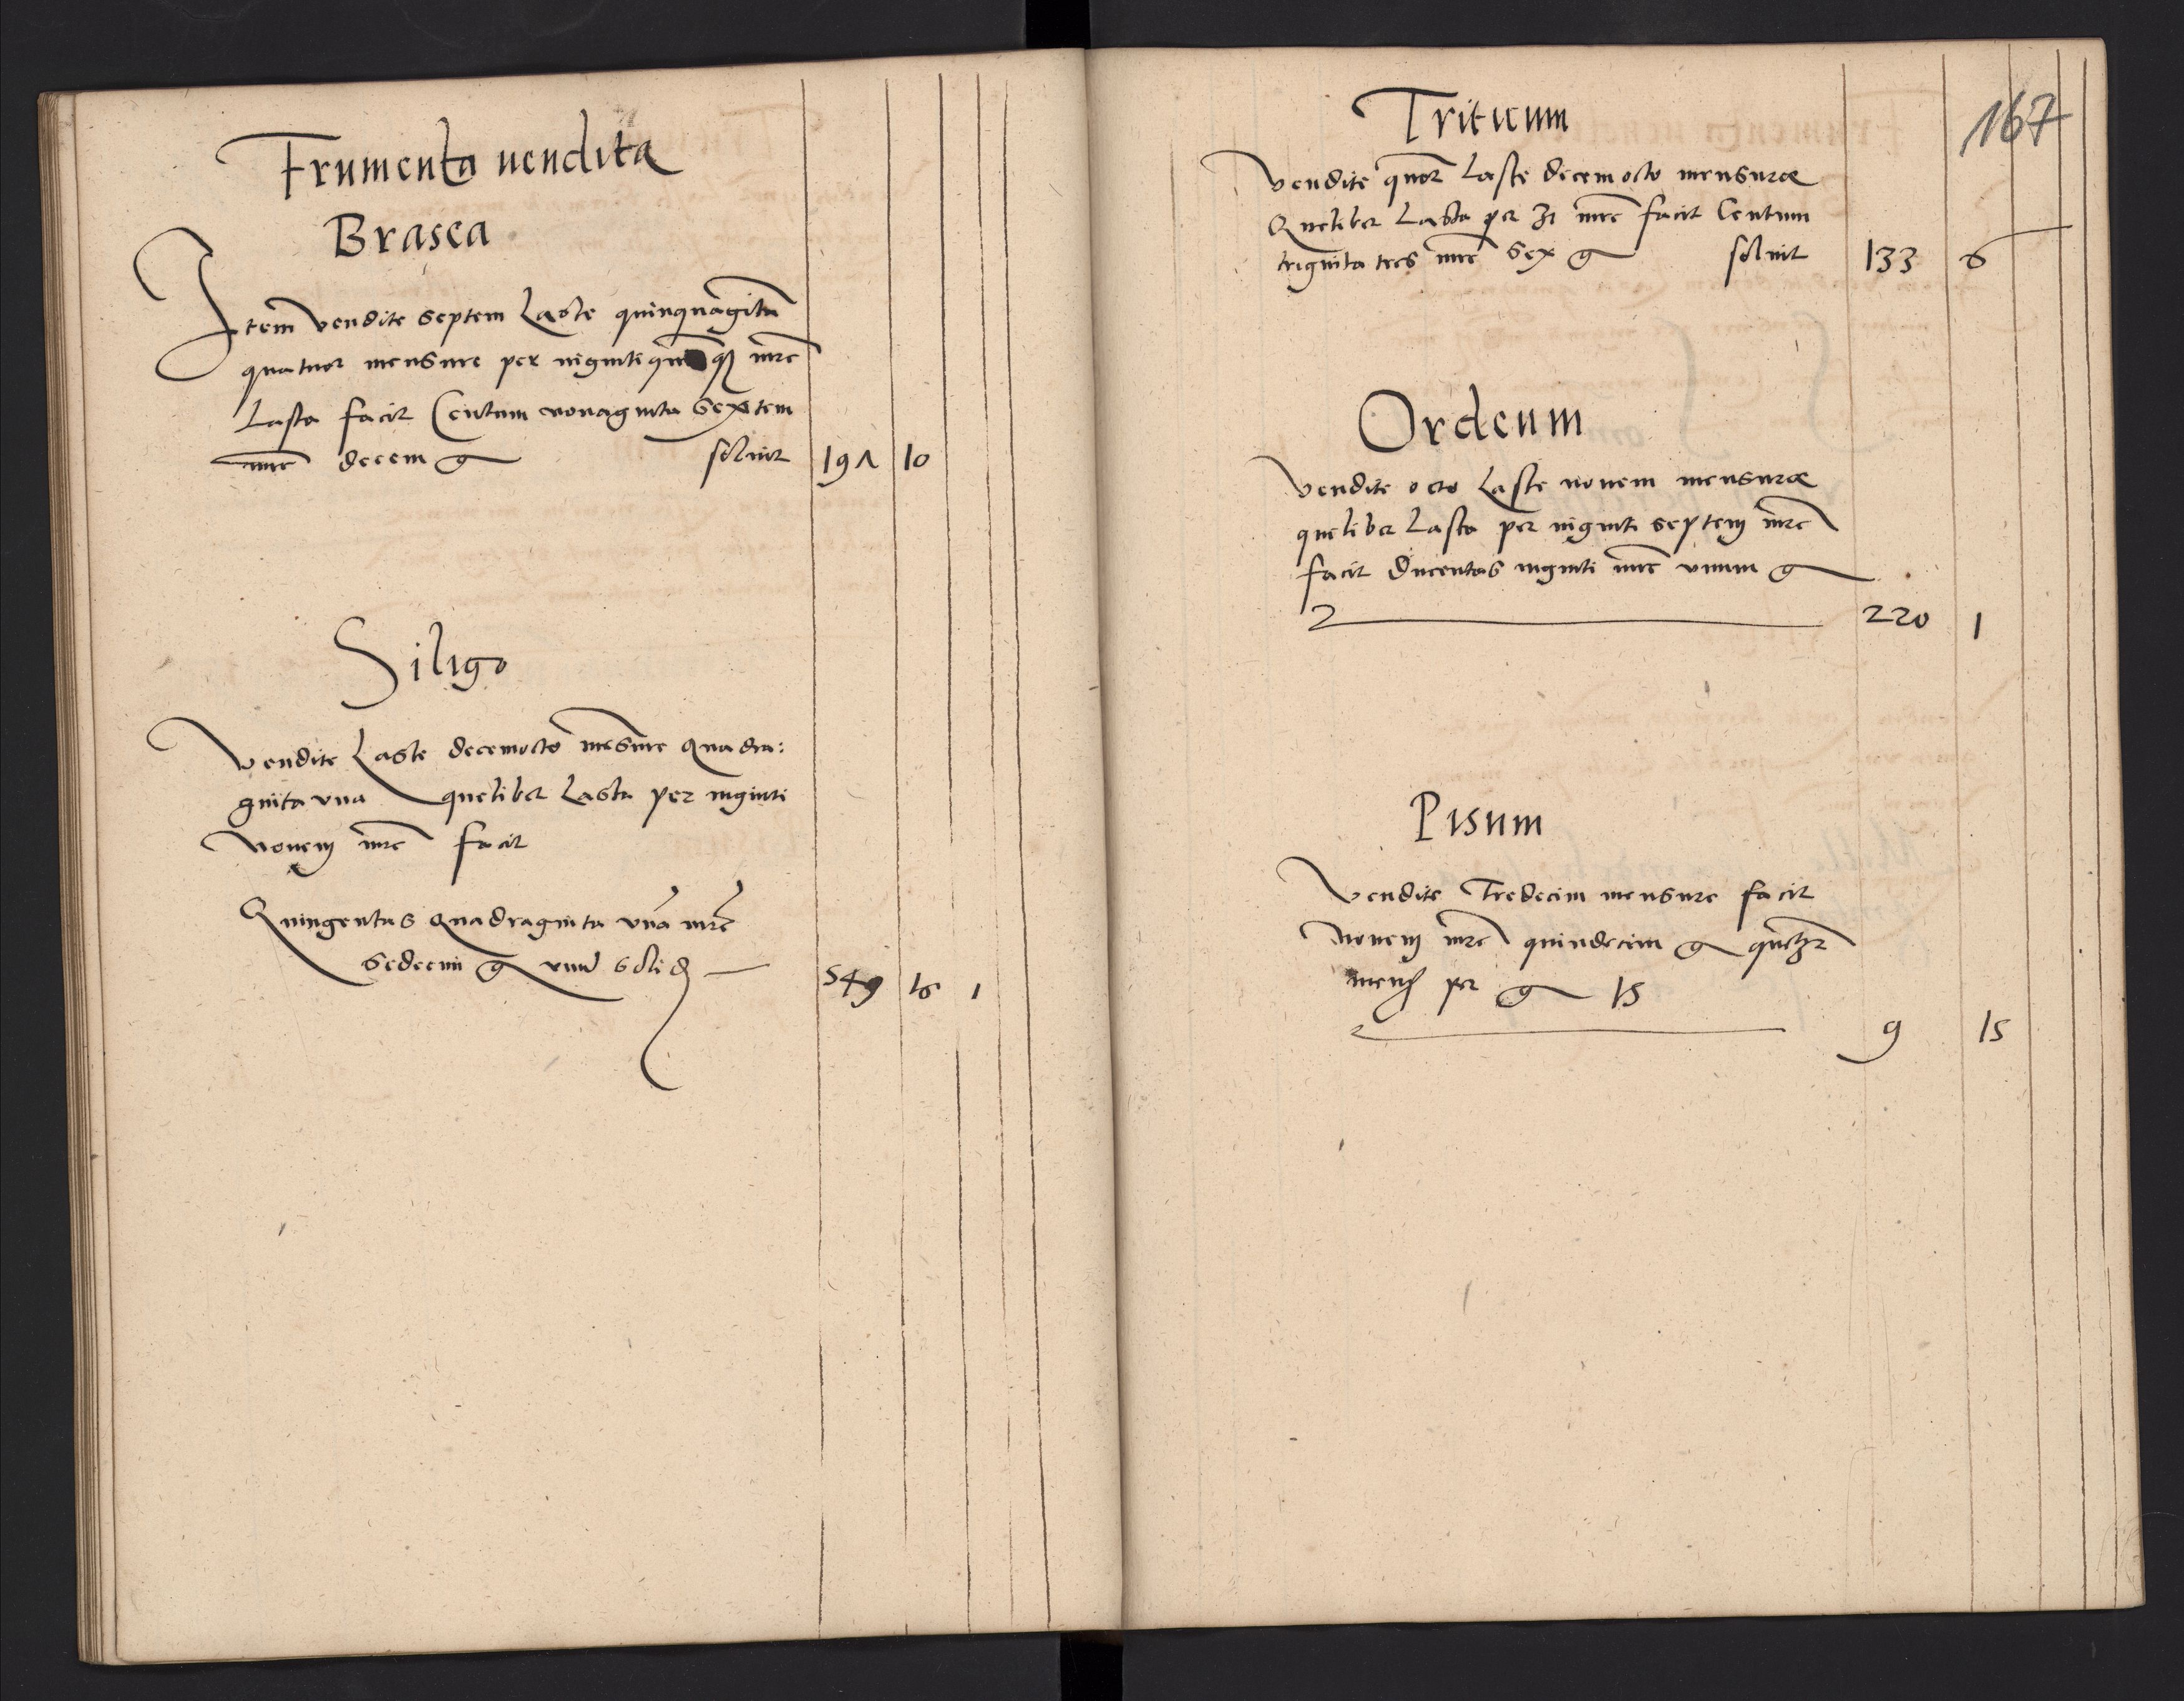 Frumenta uendita
Brasea
Item vendite septem Laste quinquagita
quatuor mensure per uiginti mrc
Lasta facit Centum nonaginta septem
mrc decem g soluit 197 10
Siligo
vendite Laste decemocto mesure quadra:
ginta vna quelibet Lasta per uiginti
nonem mrc facit
Quingentas quadraginta vna mrc
sedecim g vnu solid 549 16 1
167
Triticum
vendite quor Laste decem octo mensurae
Quelibet Lasta per 31 mrc facit Centum
triginta tres mrc sex g soluit 133 6
Ordeum
vendite octo Laste nouem mensurae
quelibet Lasta per uiginti septem mrc
facit Ducentas uiginti mrc vnum g
220 1
Pisum
Vendite Tredecim mensure facit
nouem mrc quindecim g
mens per g 15
9 15